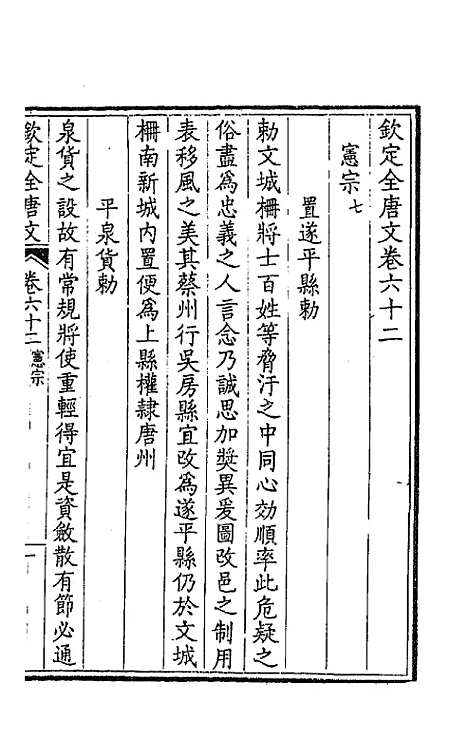 欽定全唐文卷六十二
憲宗七
置遂平縣勅
勅文城柵將士百姓等脅汙之中同心効順率此危疑之
俗盡爲忠義之人言念乃誠思加奬異爰圖改邑之制用
表移風之美其蔡州行吳房縣宜改爲遂平縣仍於文城
柵南新城内置便爲上縣權隷唐州
平泉貨勅
泉貨之設故有常規將使重輕得宜是資斂散有節必通
欽定全唐文 卷六十二 憲宗 一